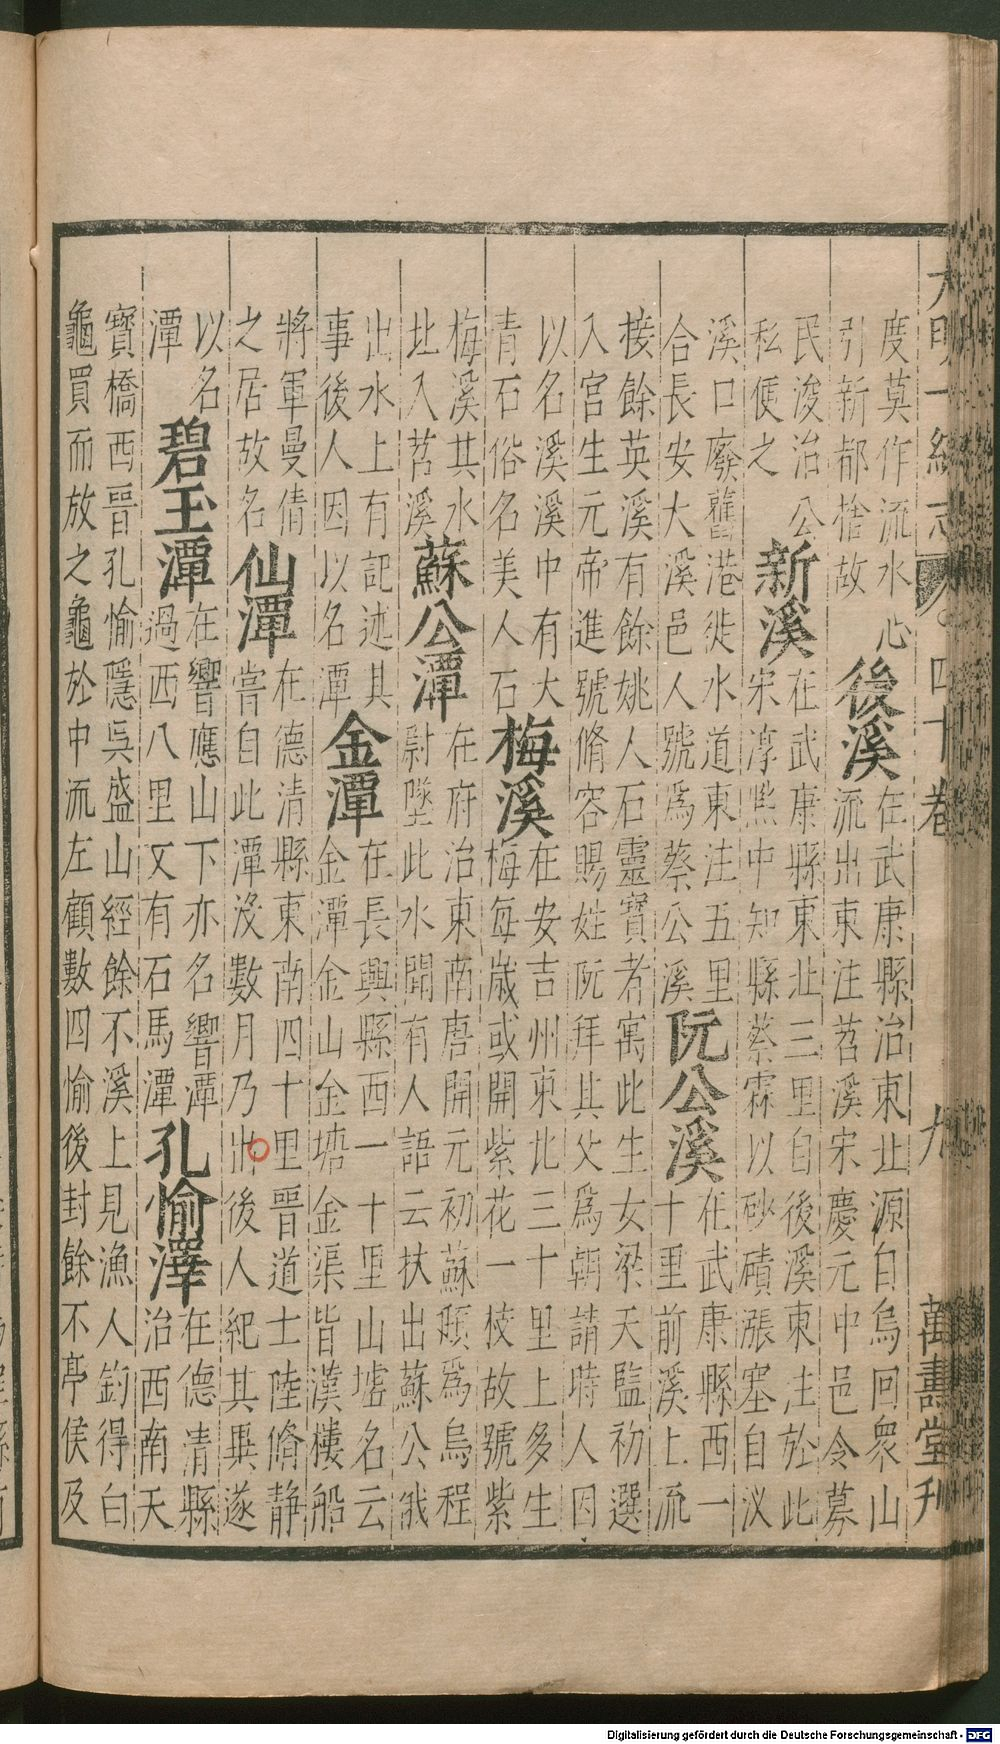 大明一統志 四十卷 九 萬壽堂刊
度莫作流水心
引新都捨故
後溪
在武康縣治東北源自烏回眾山
流出東注苕溪宋慶元中邑令募
民浚治公
私便之
新溪
在武康縣東北三里自後溪東注於此
宋淳熙中知縣蔡霖以砂磧漲塞自汊
溪口廢舊港徙水道東注五里
合長安大溪邑人號為蔡公溪
阮公溪
在武康縣西一
十里前溪上流
接餘英溪有餘姚人石靈寶者寓此生女梁天監初選
入宮生元帝進號脩容賜姓阮拜其父為朝請時人因
以名溪溪中有大
青石俗名美人石
梅溪
在安吉州東北三十里上多生
梅每歲或開紫花一枝故號紫
梅溪其水
北入苕溪
蘇公潭
在府治東南唐開元初蘇頲為烏程
尉墜此水聞有人語云扶出蘇公我
出水上有記述其
事後人因以名潭
金潭
在長興縣西一十里山墟名云
金潭金山金塘金渠皆漢樓船
將軍曼倩
之居故名
仙潭
在德清縣東南四十里晉道士陸脩靜
嘗自此潭沒數月乃出後人紀其異遂
以名
潭
碧玉潭
在響應山下亦名響潭
過西八里又有石馬潭
孔愉澤
在德清縣
治西南天
寶橋西晉孔愉隱吳盛山經餘不溪上見漁人釣得白
龜買而放之龜於中流左顧數四愉後封餘不亭侯及
Digitalisierung gefördert durch die Deutsche Forschungsgemeinschaft - DFG